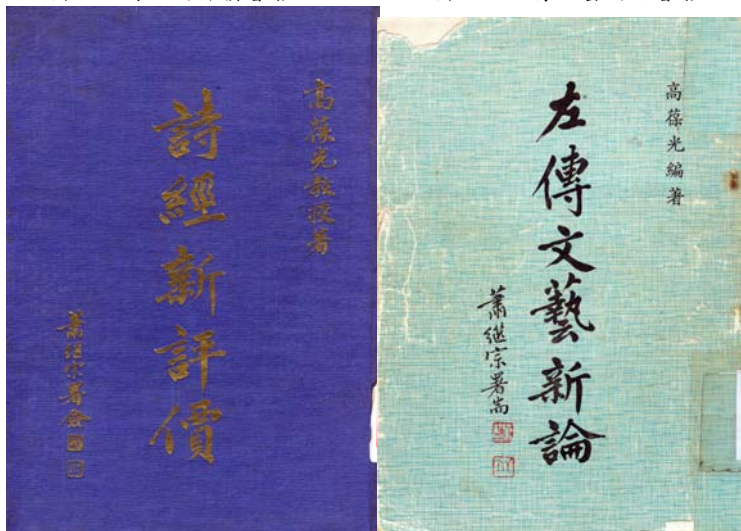 高葆光教授著
詩經新評價
蕭繼宗署
高葆光編著
左傳文藝新論
蕭繼宗署耑